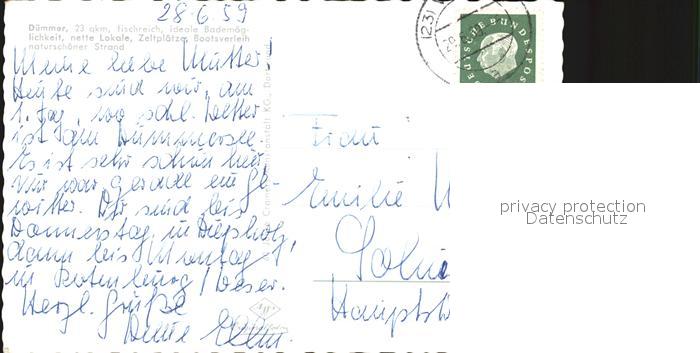 28.6.59
Dümmer, 23 qkm, fischreich, ideale Bademög-
lichkeit, nette Lokale, Zeltplätze, Bootsverleih
naturschöner Strand
Meine liebe Mutter!
Heute sind wir, am
1. Tag, wo schl. Wetter
ist am Dümmersee.
Es ist sehr schön hier,
nur war gerade ein Ge-
witter. Wir sind bis
Donnerstag in Diepholz,
dann bis Montag
in Rotenburg / Weser.
Herzl. Grüße
Deine
Frau
Emilie
Hauptst
DEUTSCHE BUNDESPOST
privacy protection
Datenschutz